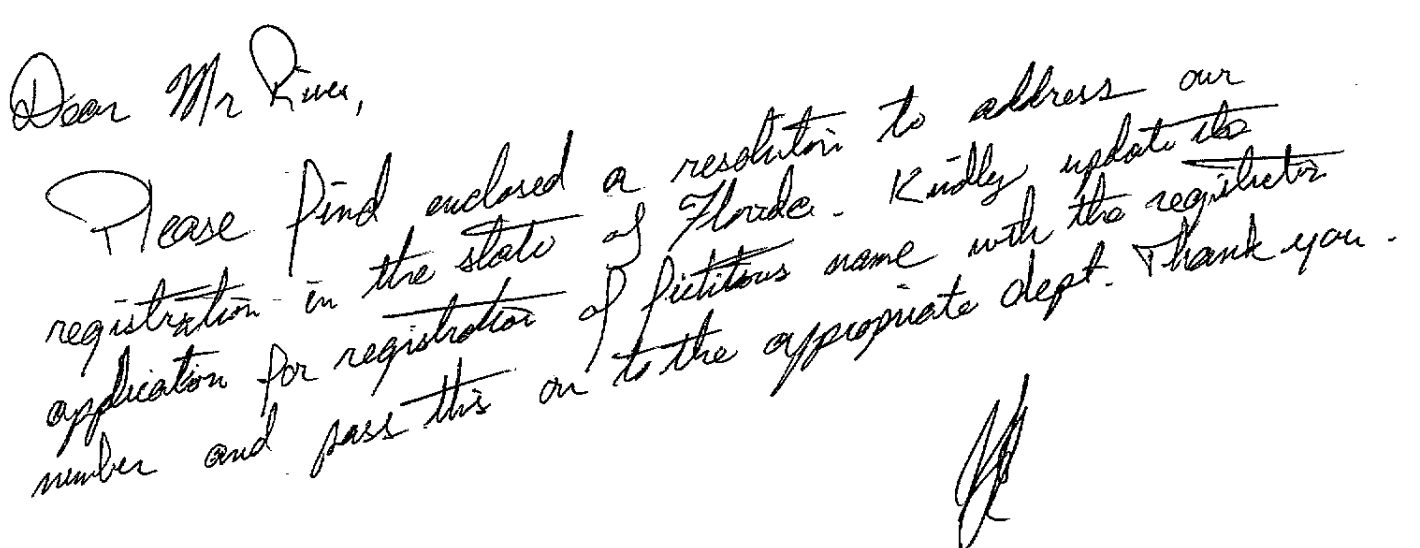 Dear Mr River,
Please find enclosed a resolution to address our
registration in the state of Florida. Kindly update the
application for registration of fictitious name with the registration
number and pass this on to the appropriate dept. Thank you.